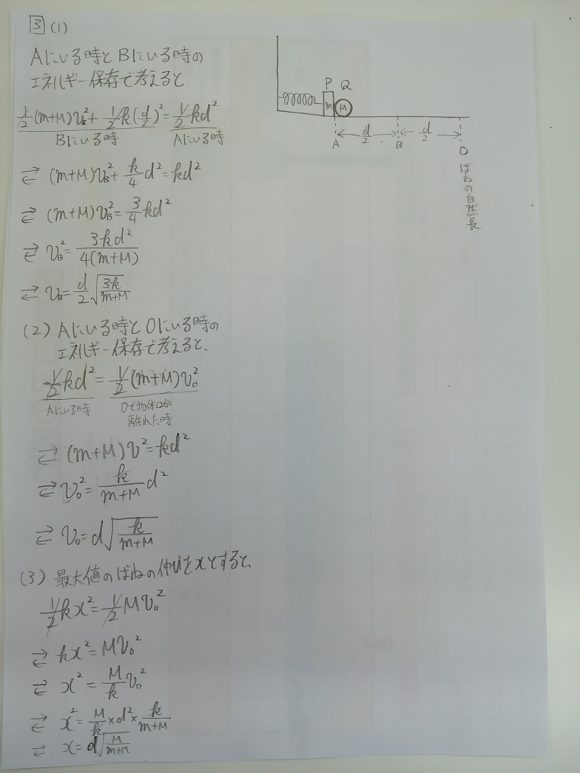 3 (1)
Aにいる時とBにいる時の
エネルギー保存で考えると
1/2(m+M)v_B^2 + 1/2k(d/2)^2 = 1/2kd^2
Bにいる時 Aにいる時
⇄ (m+M)v_B^2 + k/4 d^2 = kd^2
⇄ (m+M)v_B^2 = 3/4 kd^2
⇄ v_B^2 = 3kd^2/4(m+M)
⇄ v_B = d/2 √(3k/m+M)
(2) Aにいる時とOにいる時の
エネルギー保存で考えると、
1/2kd^2 = 1/2(m+M)v_0^2
Aにいる時 Oで物体Qが
離れた時
⇄ (m+M)v^2 = kd^2
⇄ v_0^2 = k/m+M d^2
⇄ v_0 = d√(k/m+M)
(3) 最大値のばねの伸びをxとすると、
1/2kx^2 = 1/2Mv_0^2
⇄ kx^2 = Mv_0^2
⇄ x^2 = M/k v_0^2
⇄ x^2 = M/k × d^2 × k/m+M
⇄ x = d√(M/m+M)
P Q
m M
A d/2 B d/2 O
ばねの自然長